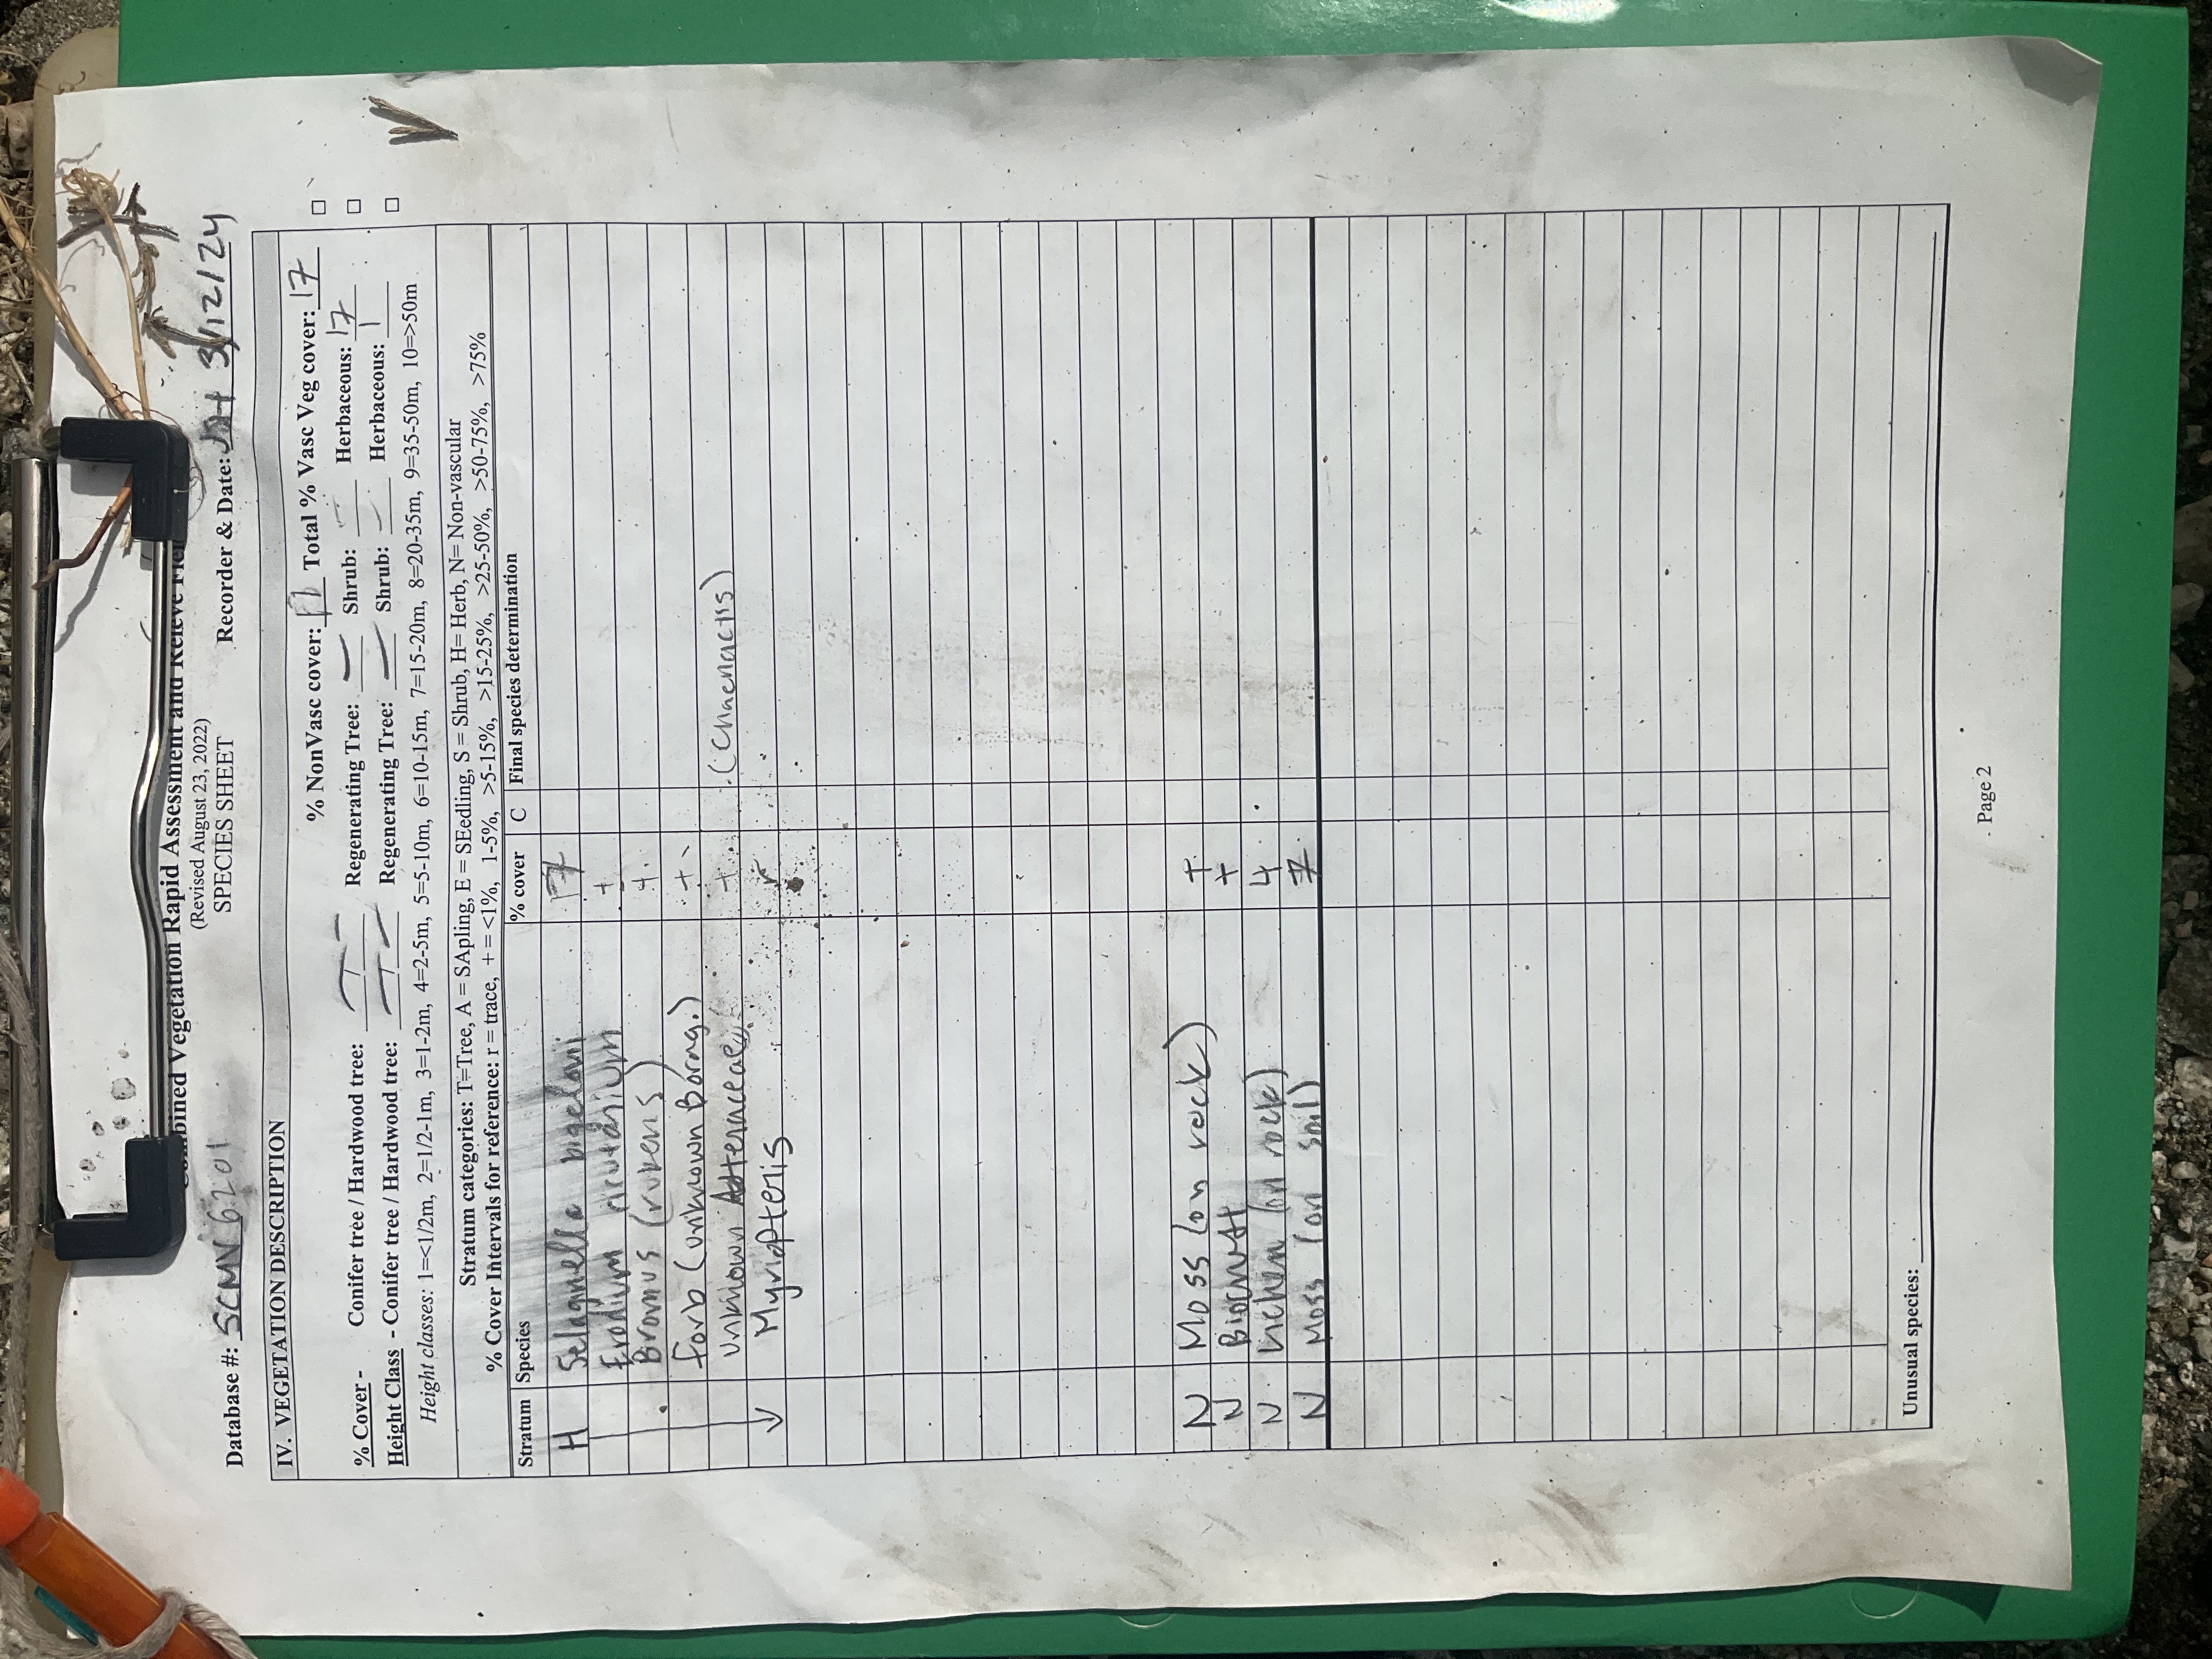 Combined Vegetation Rapid Assessment and Relevé
(Revised August 23, 2022)
SPECIES SHEET
Database #: SCMN6201 Recorder & Date: 3/12/24
IV. VEGETATION DESCRIPTION
% NonVasc cover: Total % Vasc Veg cover: 17
% Cover - Conifer tree / Hardwood tree: — / — Regenerating Tree: — Shrub: — Herbaceous: 17
Height Class - Conifer tree / Hardwood tree: — / — Regenerating Tree: — Shrub: — Herbaceous: 1
Height classes: 1=<1/2m, 2=1/2-1m, 3=1-2m, 4=2-5m, 5=5-10m, 6=10-15m, 7=15-20m, 8=20-35m, 9=35-50m, 10=>50m
Stratum categories: T=Tree, A = SApling, E = SEedling, S = Shrub, H= Herb, N= Non-vascular
% Cover Intervals for reference: r = trace, + = <1%, 1-5%, >5-15%, >15-25%, >25-50%, >50-75%, >75%
Stratum Species % cover C Final species determination
H Selaginella bigelovii 17
Erodium cicutarium +
Bromus (rubens) +
forb (unknown Borag.) +
unknown Asteraceae + (Chaenactis)
Myriopteris r
N Moss (on rock) +
N Biocrust +
N Lichen (on rock) 4
N Moss (on soil) 7
Unusual species:
Page 2